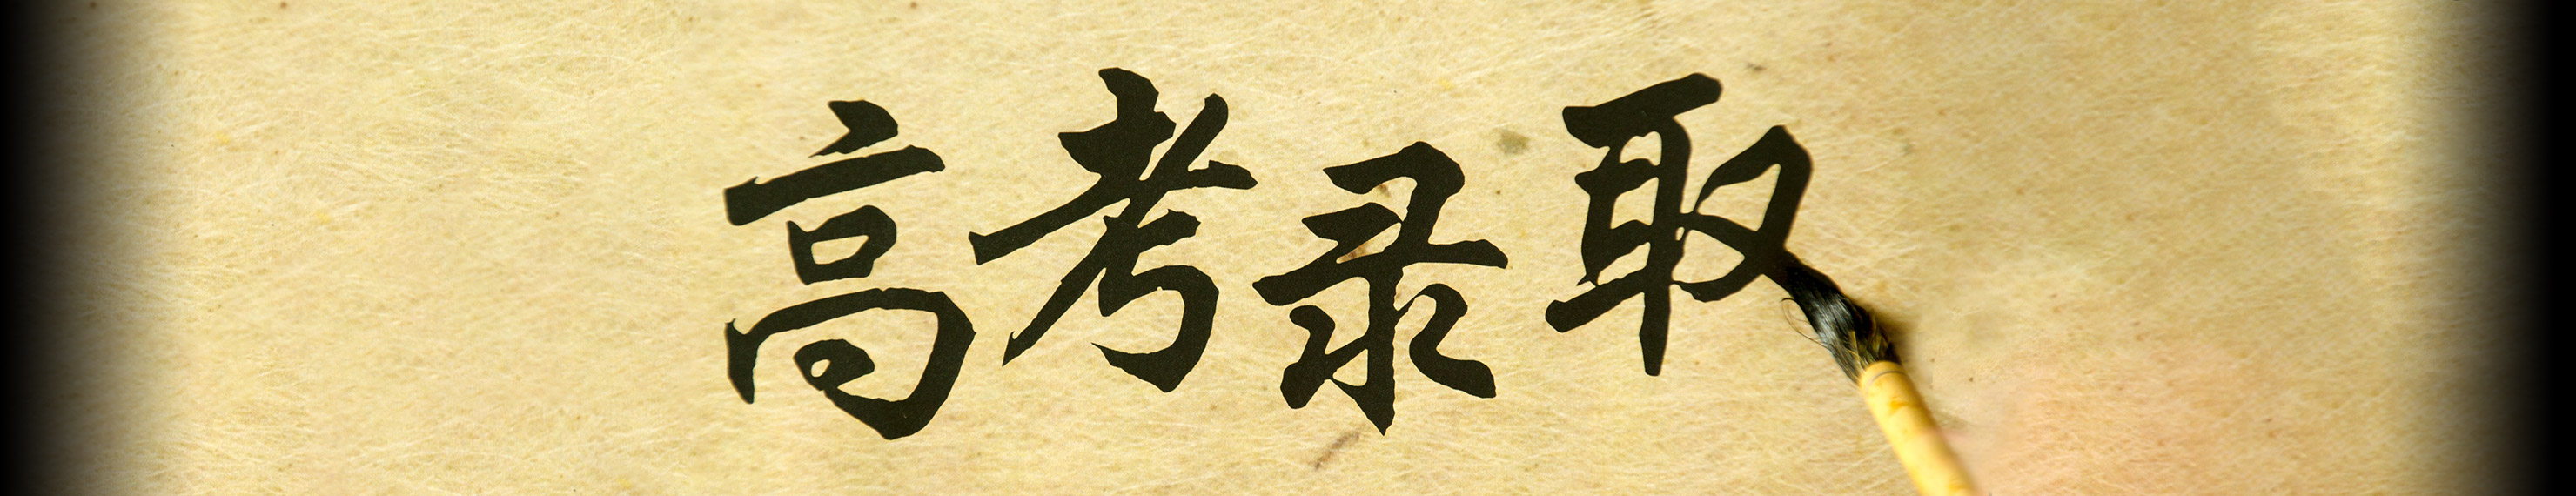 高考录取